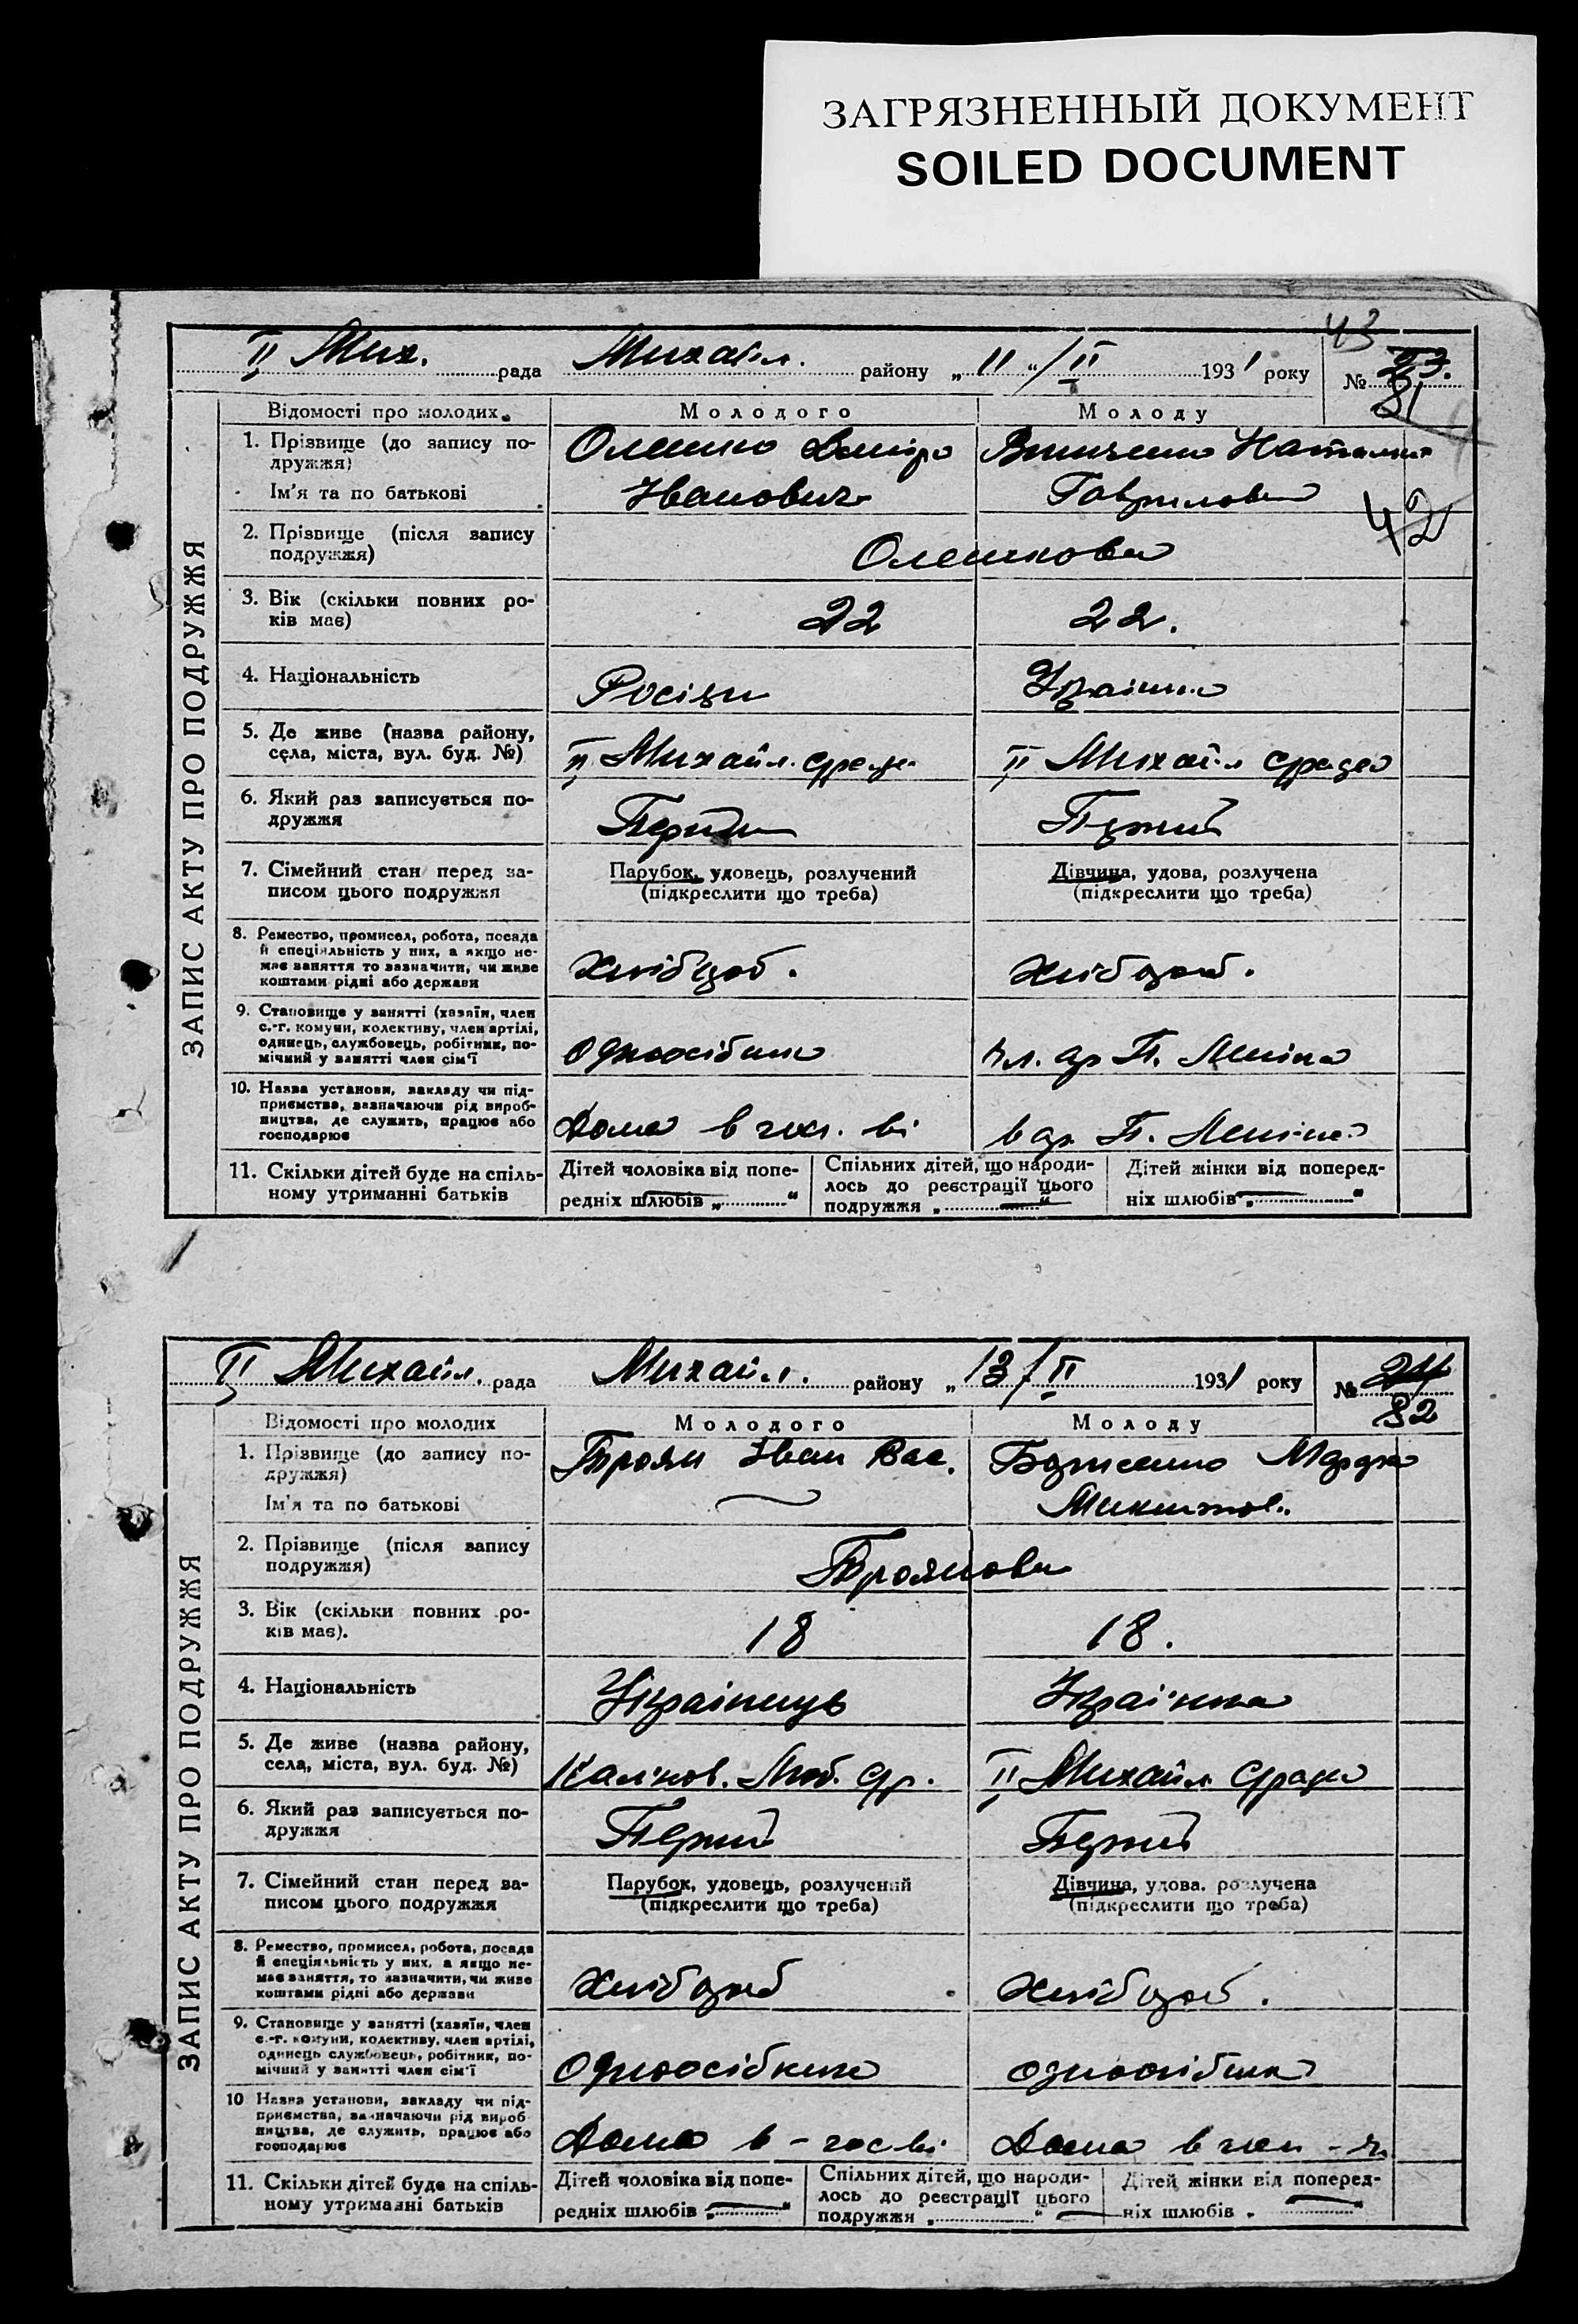 ЗАГРЯЗНЕННЫЙ ДОКУМЕНТ
SOILED DOCUMENT
43
II Мих. рада Михайл. району „ 11 “ / II 1931 року № 23.
81
Відомості про молодих Молодого Молоду
ЗАПИС АКТУ ПРО ПОДРУЖЖЯ
1. Прізвище (до запису по-
дружжя)
Ім'я та по батькові
Олешко Дмітро
Іванович
Наталия
Гаврилова
42
2. Прізвище (після запису
подружжя)
Олешкови
3. Вік (скільки повних ро-
ків має)
22 22.
4. Національність
Росіян Українка
5. Де живе (назва району,
села, міста, вул. буд. №)
II Михайл. II Михайл
6. Який раз записується по-
дружжя
Перший Перший
7. Сімейний стан перед за-
писом цього подружжя
Парубок, удовець, розлучений
(підкреслити що треба)
Дівчина, удова, розлучена
(підкреслити що треба)
8. Ремество, промисел, робота, посада
й спеціяльність у них, а якщо не-
має заняття то зазначити, чи живе
коштами рідні або держави
Хлібороб. Хлібороб.
9. Становище у занятті (хазяїн, член
с.-г. комуни, колективу, член артілі,
одинець, службовець, робітник, по-
мічний у занятті член сім'ї
Одноосібник чл. ар П. Леніна
10. Назва установи, закладу чи під-
приємства, зазначаючи рід вироб-
ництва, де служить, працює або
господарює
Дома в в ар. П. Леніна
11. Скільки дітей буде на спіль-
ному утриманні батьків
Дітей чоловіка від попе-
редніх шлюбів „ “
Спільних дітей, що народи-
лось до реєстрації цього
подружжя „ “
Дітей жінки від поперед-
ніх шлюбів „ “
II Михайл. рада Михайл. району „ 13 / II 1931 року № 24
82
Відомості про молодих Молодого Молоду
ЗАПИС АКТУ ПРО ПОДРУЖЖЯ
1. Прізвище (до запису по-
дружжя)
Ім'я та по батькові
Троян Іван Вас.
Микитов.
2. Прізвище (після запису
подружжя)
Троянови
3. Вік (скільки повних ро-
ків має).
18 18.
4. Національність
Українець Українка
5. Де живе (назва району,
села, міста, вул. буд. №)
II Михайл
6. Який раз записується по-
дружжя
Перший Перший
7. Сімейний стан перед за-
писом цього подружжя
Парубок, удовець, розлучений
(підкреслити що треба)
Дівчина, удова. розлучена
(підкреслити що треба)
8. Ремество, промисел, робота, посада
й спеціяльність у них, а якщо не-
має заняття, то зазначити, чи живе
коштами рідні або держави
Хлібороб Хлібороб.
9. Становище у занятті (хазяїн, член
с.-г. комуни, колективу, член артілі,
одинець службовець, робітник, по-
мічний у занятті член сім'ї
Одноосібник одноосібник
10 Назва установи, закладу чи під-
приємства, зазначаючи рід вироб-
ництва, де служить, працює або
господарює
Дома в Дома в
11. Скільки дітей буде на спіль-
ному утриманні батьків
Дітей чоловіка від попе-
редніх шлюбів „ “
Спільних дітей, що народи-
лось до реєстрації цього
подружжя „ “
Дітей жінки від поперед-
ніх шлюбів „ “